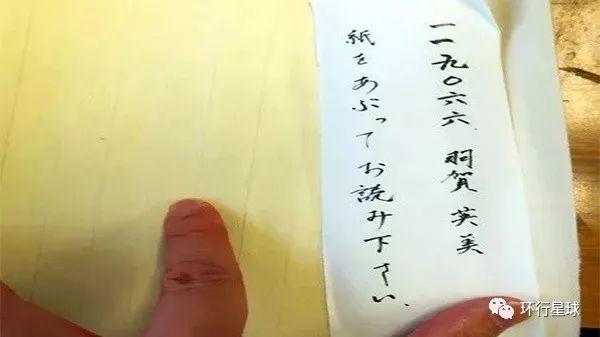 一一九〇六六 羽賀 英美
紙をあぶってお読み下さい、
环行星球